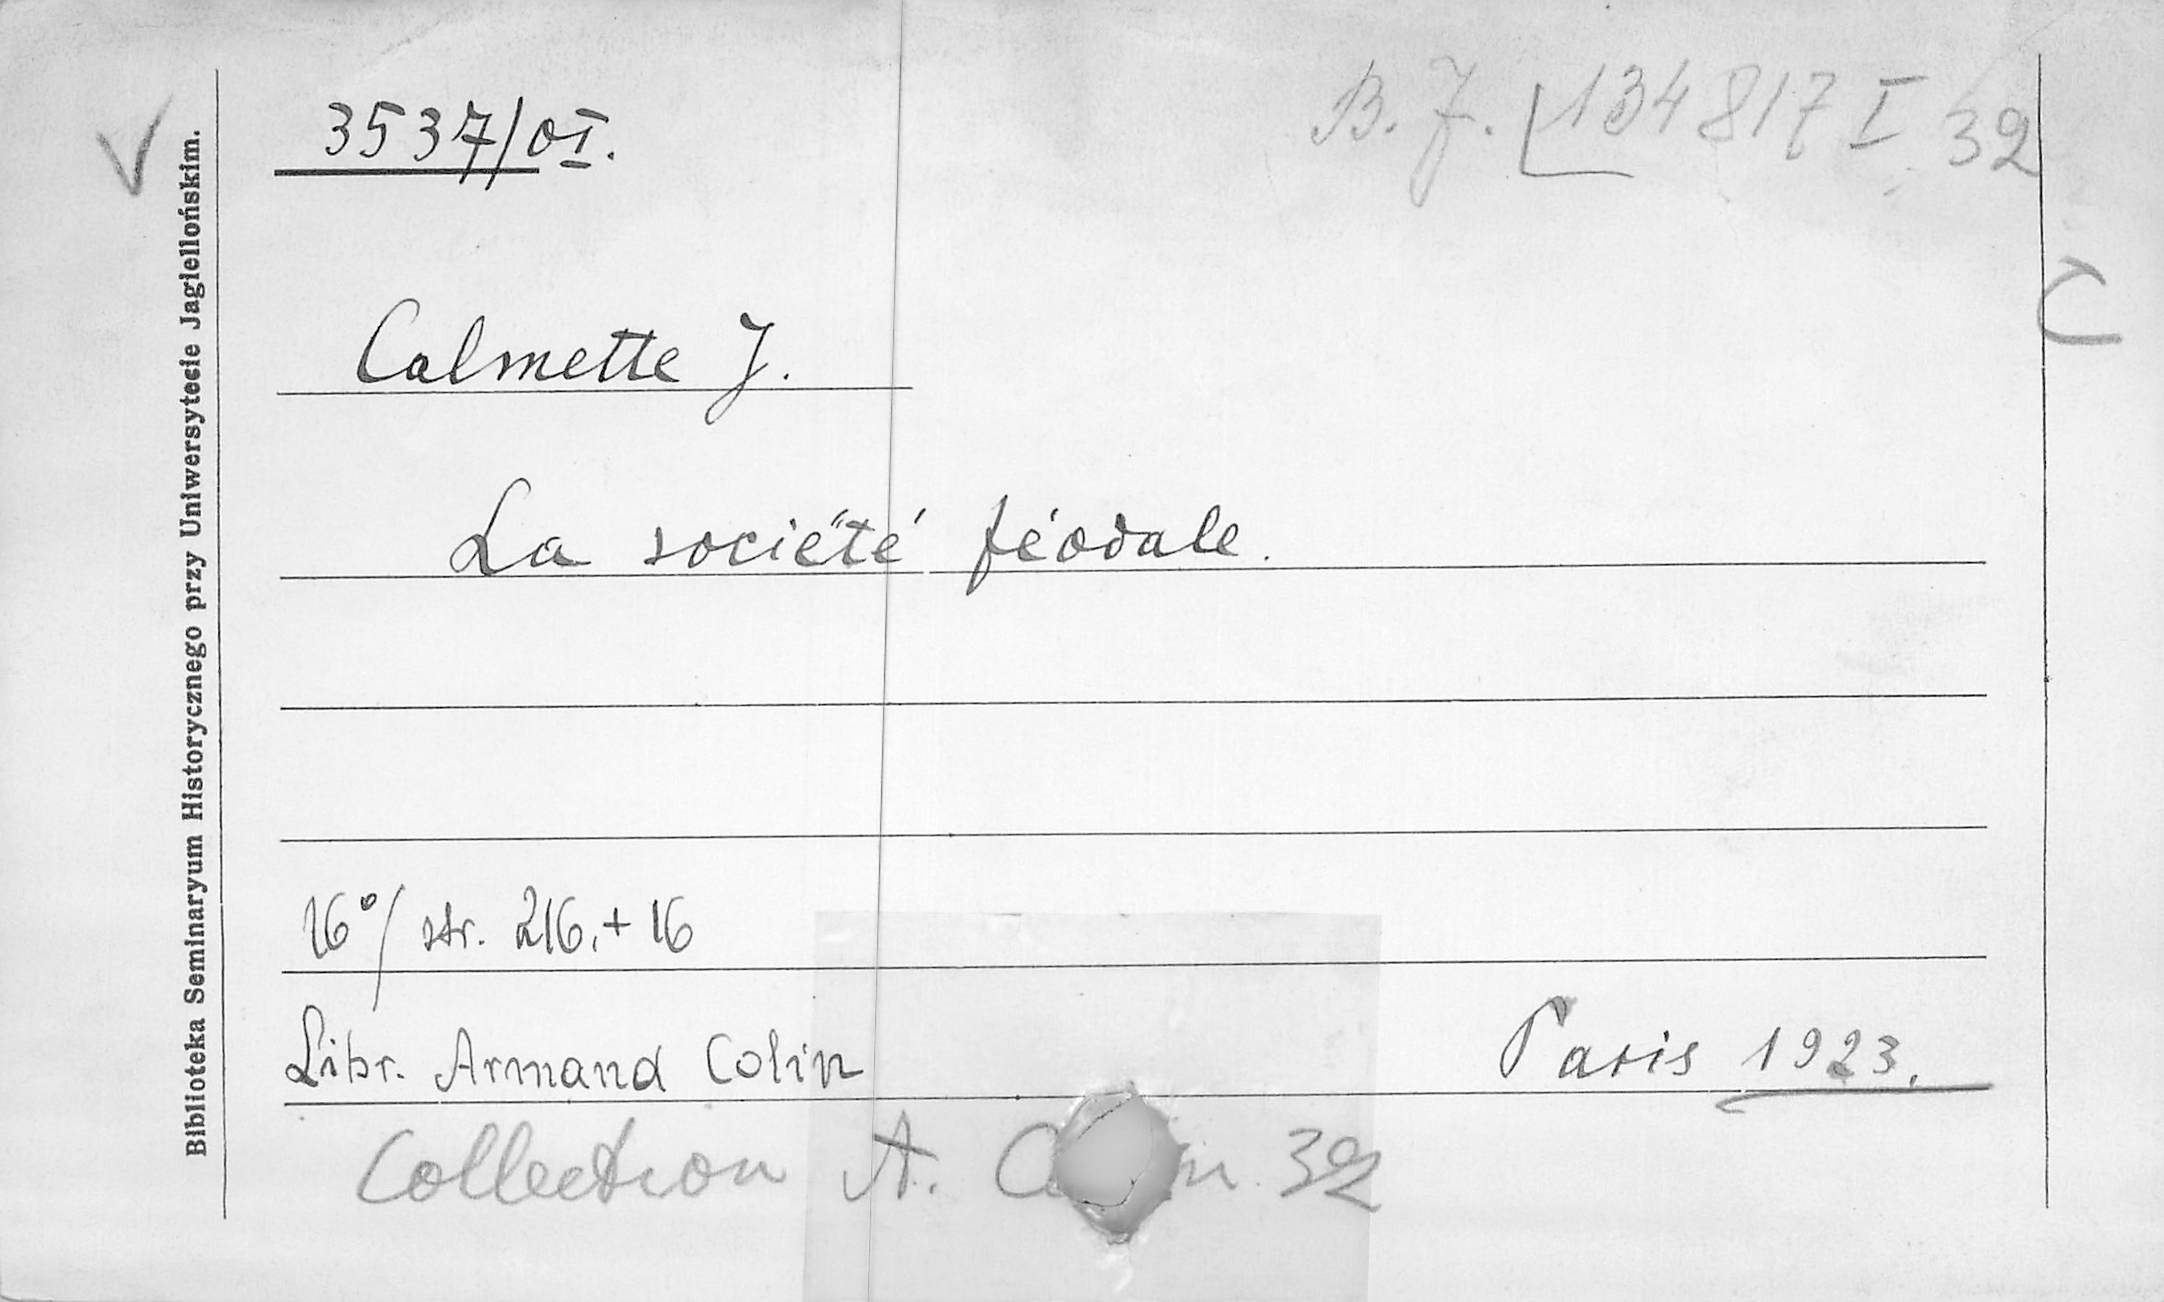 3537/OI.
B. J. 134817 I 32
Calmette J.
La société féodale.
16°/ str. 216.+16
Libr. Armand Colin
Paris 1923.
Collection A. 32
Biblioteka Seminaryum Historycznego przy Uniwersytecie Jagiellońskim.